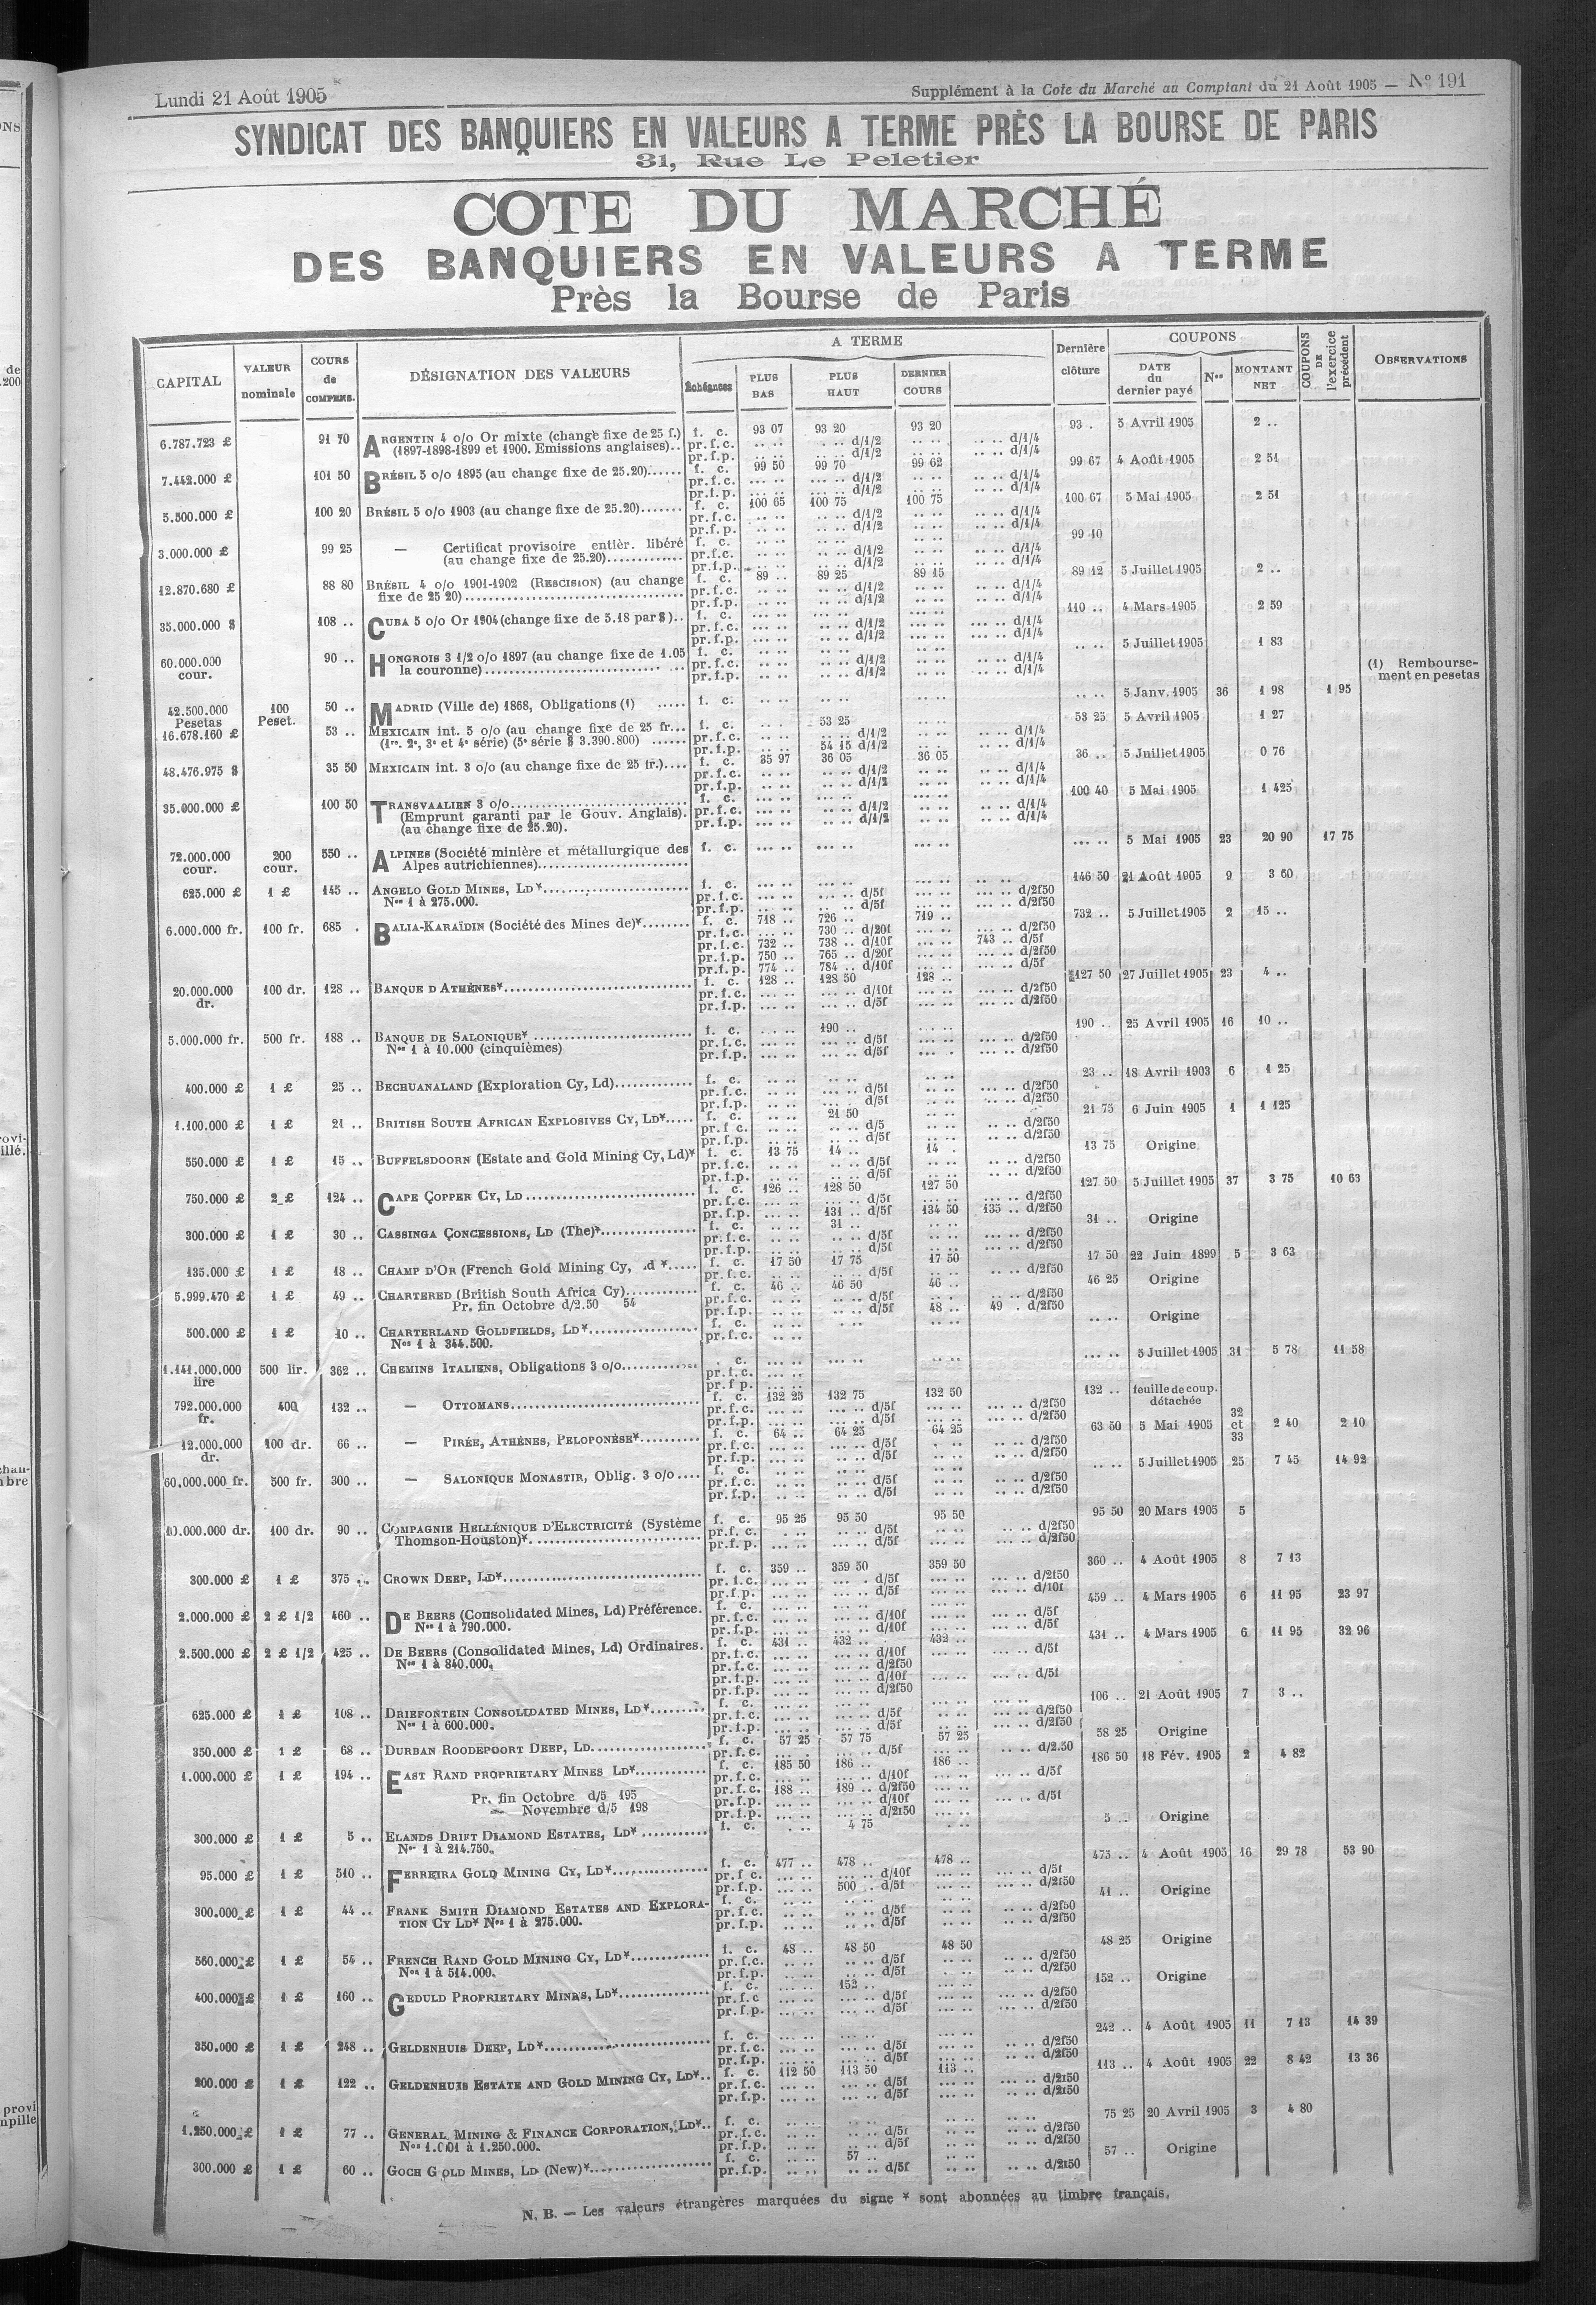 Lundi 21 Août 1905
Supplément à la Cote du Marché au Comptant du 21 Août 1905 — No 191
SYNDICAT DES BANQUIERS EN VALEURS A TERME PRÈS LA BOURSE DE PARIS
31, Rue Le Peletier
COTE DU MARCHÉ
DES BANQUIERS EN VALEURS A TERME
Près la Bourse de Paris
CAPITAL | VALEUR nominale | COURS de COMPENS. | DÉSIGNATION DES VALEURS | A TERME | Dernière clôture | COUPONS | COUPONS DE l'exercice précédent | OBSERVATIONS
Échéances | PLUS BAS | PLUS HAUT | DERNIER COURS | DATE du dernier payé | Nos | MONTANT NET
6.787.723 £ 91 70 ARGENTIN 4 o/o Or mixte (change fixe de 25 f.) f. c. 93 07 93 20 93 20 93 . 5 Avril 1905 2 ..
(1897-1898-1899 et 1900. Emissions anglaises).. pr.f.c. d/1/2 d/1/4
pr.f.p. d/1/2 d/1/4
7.442.000 £ 101 50 BRÉSIL 5 o/o 1895 (au change fixe de 25.20)...... f. c. 99 50 99 70 99 62 99 67 4 Août 1905 2 51
pr.f.c. d/1/2 d/1/4
pr.f.p. d/1/2 d/1/4
5.500.000 £ 100 20 BRÉSIL 5 o/o 1903 (au change fixe de 25.20)....... f. c. 100 65 100 75 100 75 100 67 5 Mai 1905 2 51
pr.f.c. d/1/2 d/1/4
pr.f.p. d/1/2 d/1/4
3.000.000 £ 99 25 — Certificat provisoire entièr. libéré f. c. 99 40
(au change fixe de 25.20)............. pr.f.c. d/1/2 d/1/4
pr.f.p. d/1/2 d/1/4
12.870.680 £ 88 80 BRÉSIL 4 o/o 1901-1902 (RESCISION) (au change f. c. 89 .. 89 25 89 15 89 12 5 Juillet 1905 2 ..
fixe de 25 20) pr.f.c. d/1/2 d/1/4
pr.f.p. d/1/2 d/1/4
35.000.000 $ 108 .. CUBA 5 o/o Or 1904 (change fixe de 5.18 par $).. f. c. 110 .. 4 Mars 1905 2 59
pr.f.c. d/1/2 d/1/4
pr.f.p. d/1/2 d/1/4
60.000.000 cour. 90 .. HONGROIS 3 1/2 o/o 1897 (au change fixe de 1.05 f. c. 5 Juillet 1905 1 83
la couronne) pr.f.c. d/1/2 d/1/4
pr.f.p. d/1/2 d/1/4
(1) Rembourse-
ment en pesetas
42.500.000 Pesetas 100 Peset. 50 .. MADRID (Ville de) 1868, Obligations (1) ..... f. c. 5 Janv. 1905 36 1 98 1 95
16.678.160 £ 53 .. MEXICAIN int. 5 o/o (au change fixe de 25 fr... f. c. 53 25 53 25 5 Avril 1905 1 27
(1re, 2e, 3e et 4e série) (5e série $ 3.390.800) ...... pr.f.c. d/1/2 d/1/4
pr.f.p. 54 15 d/1/2 d/1/4
48.476.975 $ 35 50 MEXICAIN int. 3 o/o (au change fixe de 25 fr.).... f. c. 35 97 36 05 36 05 36 .. 5 Juillet 1905 0 76
pr.f.c. d/1/2 d/1/4
pr.f.p. d/1/2 d/1/4
35.000.000 £ 100 50 TRANSVAALIEN 3 o/o f. c. 100 40 5 Mai 1905 1 425
(Emprunt garanti par le Gouv. Anglais). pr.f.c. d/1/2 d/1/4
(au change fixe de 25.20). pr.f.p. d/1/2 d/1/4
72.000.000 cour. 200 cour. 550 .. ALPINES (Société minière et métallurgique des f. c. 5 Mai 1905 23 20 90 17 75
Alpes autrichiennes)
625.000 £ 1 £ 145 .. ANGELO GOLD MINES, LD* f. c. 146 50 21 Août 1905 9 3 60
Nos 1 à 275.000. pr.f.c. d/5f d/2f50
pr.f.p. d/5f d/2f50
6.000.000 fr. 100 fr. 685 . BALIA-KARAÏDIN (Société des Mines de)* f. c. 718 .. 726 .. 719 .. 732 .. 5 Juillet 1905 2 15 ..
pr.f.c. 730 .. d/20f d/2f50
pr.f.c. 732 .. 738 .. d/10f 743 .. d/5f
pr.f.p. 750 .. 765 .. d/20f d/2f50
pr.f.p. 774 .. 784 .. d/10f d/5f
20.000.000 dr. 100 dr. 128 .. BANQUE D'ATHÈNES* f. c. 128 .. 128 50 128 .. 127 50 27 Juillet 1905 23 4 ..
pr.f.c. d/10f d/2f50
pr.f.p. d/5f d/2f50
5.000.000 fr. 500 fr. 188 .. BANQUE DE SALONIQUE* f. c. 190 .. 190 .. 25 Avril 1905 16 10 ..
Nos 1 à 10.000 (cinquièmes) pr.f.c. d/5f d/2f50
pr.f.p. d/5f d/2f50
400.000 £ 1 £ 25 .. BECHUANALAND (Exploration Cy, Ld) f. c. 23 .. 18 Avril 1903 6 1 25
pr.f.c. d/5f d/2f50
pr.f.p. d/5f d/2f50
1.100.000 £ 1 £ 21 .. BRITISH SOUTH AFRICAN EXPLOSIVES CY, LD* f. c. 21 50 21 75 6 Juin 1905 1 1 125
pr.f.c. d/5 d/2f50
pr.f.p. d/5f d/2f50
550.000 £ 1 £ 15 .. BUFFELSDOORN (Estate and Gold Mining Cy, Ld)* f. c. 13 75 14 .. 14 . 13 75 Origine
pr.f.c. d/5f d/2f50
pr.f.p. d/5f d/2f50
750.000 £ 2 £ 124 .. CAPE COPPER CY, LD f. c. 126 .. 128 50 127 50 127 50 5 Juillet 1905 37 3 75 10 63
pr.f.c. d/5f d/2f50
pr.f.p. 131 .. d/5f 134 50 135 .. d/2f50
300.000 £ 1 £ 30 .. CASSINGA CONCESSIONS, LD (The)* f. c. 31 .. 31 .. Origine
pr.f.c. d/5f d/2f50
pr.f.p. d/5f d/2f50
135.000 £ 1 £ 18 .. CHAMP D'OR (French Gold Mining Cy, d * f. c. 17 50 17 75 17 50 17 50 22 Juin 1899 5 3 63
pr.f.c. d/5f d/2f50
5.999.470 £ 1 £ 49 .. CHARTERED (British South Africa Cy) f. c. 46 .. 46 50 46 .. 46 25 Origine
Pr. fin Octobre d/2.50 54 pr.f.c. d/5f d/2f50
pr.f.p. d/5f 48 .. 49 . d/2f50
500.000 £ 1 £ 10 .. CHARTERLAND GOLDFIELDS, LD* f. c. Origine
Nos 1 à 344.500. pr.f.c.
1.141.000.000 lire 500 lir. 362 .. CHEMINS ITALIENS, Obligations 3 o/o . c. 5 Juillet 1905 31 5 78 11 58
pr.f.c.
pr.f p.
792.000.000 fr. 400 132 .. — OTTOMANS f. c. 132 25 132 75 132 50 132 .. feuille de coup. détachée
pr.f.c. d/5f d/2f50
pr.f.p. d/5f d/2f50
12.000.000 dr. 100 dr. 66 .. — PIRÉE, ATHÈNES, PELOPONÈSE* f. c. 64 .. 64 25 64 25 63 50 5 Mai 1905 32 et 33 2 40 2 10
pr.f.c. d/5f d/2f50
pr.f.p. d/5f d/2f50
60.000.000 fr. 500 fr. 300 .. — SALONIQUE MONASTIR, Oblig. 3 o/o f. c. 5 Juillet 1905 25 7 45 14 92
pr.f.c. d/5f d/2f50
pr.f.p. d/5f d/2f50
10.000.000 dr. 100 dr. 90 .. COMPAGNIE HELLÉNIQUE D'ELECTRICITÉ (Système f. c. 95 25 95 50 95 50 95 50 20 Mars 1905 5
Thomson-Houston)* pr.f.c. d/5f d/2f50
pr.f.p. d/5f d/2f50
300.000 £ 1 £ 375 .. CROWN DEEP, LD* f. c. 359 .. 359 50 359 50 360 .. 4 Août 1905 8 7 13
pr.f.c. d/5f d/2f50
pr.f.p. d/5f d/10f
2.000.000 £ 2 £ 1/2 460 .. DE BEERS (Consolidated Mines, Ld) Préférence. f. c. 459 .. 4 Mars 1905 6 11 95 23 97
Nos 1 à 790.000. pr.f.c. d/10f d/5f
pr.f.p. d/10f d/5f
2.500.000 £ 2 £ 1/2 425 .. DE BEERS (Consolidated Mines, Ld) Ordinaires. f. c. 431 .. 432 .. 432 .. 431 .. 4 Mars 1905 6 11 95 32 96
Nos 1 à 840.000. pr.f.c. d/10f d/5f
pr.f.c. d/2f50
pr.f.p. d/10f d/5f
pr.f.p. d/2f50
625.000 £ 1 £ 108 .. DRIEFONTEIN CONSOLIDATED MINES, LD* f. c. 106 .. 21 Août 1905 7 3 ..
Nos 1 à 600.000. pr.f.c. d/5f d/2f50
pr.f.p. d/5f d/2f50
350.000 £ 1 £ 68 .. DURBAN ROODEPOORT DEEP, LD f. c. 57 25 57 75 57 25 58 25 Origine
pr.f.c. d/5f d/2.50
1.000.000 £ 1 £ 194 .. EAST RAND PROPRIETARY MINES LD* f. c. 185 50 186 .. 186 .. 186 50 18 Fév. 1905 2 4 82
pr.f.c. d/10f d/5f
Pr. fin Octobre d/5 195 pr.f.c. 188 .. 189 .. d/2f50
— Novembre d/5 198 pr.f.p. d/10f d/5f
pr.f.p. d/2f50
300.000 £ 1 £ 5 .. ELANDS DRIFT DIAMOND ESTATES, LD* f. c. 4 75 5 .. Origine
Nos 1 à 214.750.
95.000 £ 1 £ 510 .. FERREIRA GOLD MINING CY, LD* f. c. 477 .. 478 .. 478 .. 475 .. 4 Août 1905 16 29 78 53 90
pr.f c. d/10f d/5f
pr.f.p. 500 .. d/5f d/2f50
300.000 £ 1 £ 44 .. FRANK SMITH DIAMOND ESTATES AND EXPLORA- f. c. 41 .. Origine
TION CY LD* Nos 1 à 275.000. pr.f.c. d/5f d/2f50
pr.f.p. d/5f d/2f50
560.000 £ 1 £ 54 .. FRENCH RAND GOLD MINING CY, LD* f. c. 48 .. 48 50 48 50 48 25 Origine
Nos 1 à 514.000. pr.f.c. d/5f d/2f50
pr.f.p. d/5f d/2f50
400.000 £ 1 £ 160 .. GEDULD PROPRIETARY MINES, LD* f. c. 152 .. 152 .. Origine
pr.f.c d/5f d/2f50
pr.f.p. d/5f d/2f50
350.000 £ 1 £ 248 .. GELDENHUIS DEEP, LD* f. c. 242 .. 4 Août 1905 11 7 13 14 39
pr.f.c. d/5f d/2f50
pr.f.p. d/5f d/2f50
200.000 £ 1 £ 122 .. GELDENHUIS ESTATE AND GOLD MINING CY, LD* f. c. 112 50 113 50 113 .. 113 .. 4 Août 1905 22 8 42 13 36
pr.f.c. d/5f d/2f50
pr.f.p. d/5f d/2f50
1.250.000 £ 1 £ 77 .. GENERAL MINING & FINANCE CORPORATION, LD* f. c. 75 25 20 Avril 1905 3 4 80
Nos 1.001 à 1.250.000. pr.f.c. d/5f d/2f50
pr.f.p. d/5f d/2f50
300.000 £ 1 £ 60 .. GOCH GOLD MINES, LD (New)* f. c. 57 .. 57 .. Origine
pr.f.p. d/5f d/2f50
N. B. — Les valeurs étrangères marquées du signe * sont abonnées au timbre français.